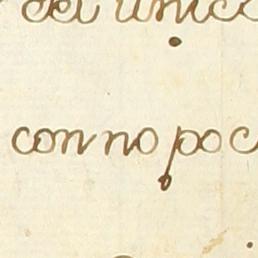 del unico
con no poc